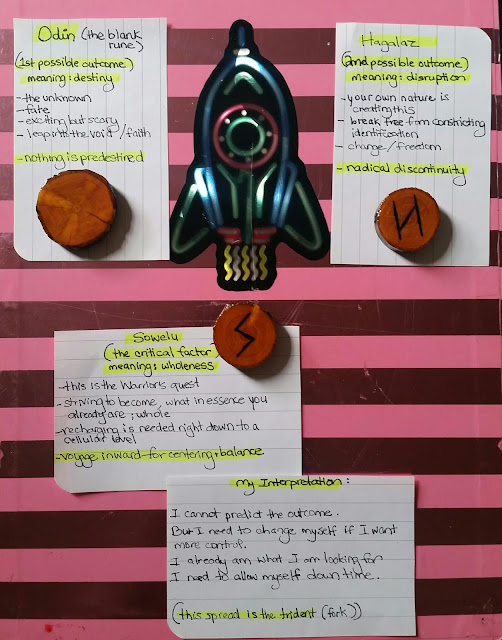 Odin (the blank
rune)
(1st possible outcome)
meaning: destiny
- the unknown
- fate
- exciting but scary
- leap into the void / faith
- nothing is predestined
Hagalaz
(2nd possible outcome)
meaning: disruption
- your own nature is
creating this
- break free from constricting
identification
- change / freedom
- radical discontinuity
Sowelu
(the critical factor)
meaning: wholeness
- this is the Warrior's quest
- striving to become, what in essence you
already are; whole
- recharging is needed right down to a
cellular level
- voyage inward for centering + balance
my Interpretation:
I cannot predict the outcome.
But I need to change myself if I want
more control.
I already am what I am looking for
I need to allow myself down time.
(this spread is the trident (fork))